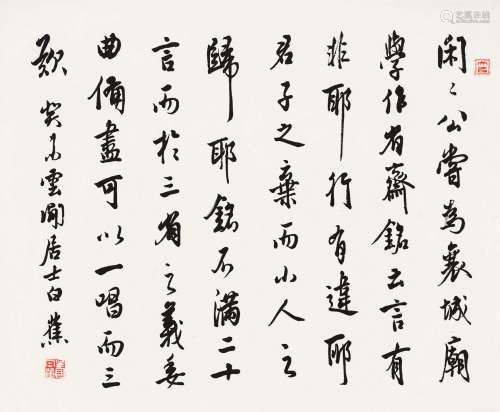 閑〻公嘗為襄城廟
學作省齋銘云言有
非耶行有違耶
君子之棄而小人之
歸耶銘不滿二十
言而於三省之義委
曲備盡可以一唱而三
歎 癸未雲間居士白蕉